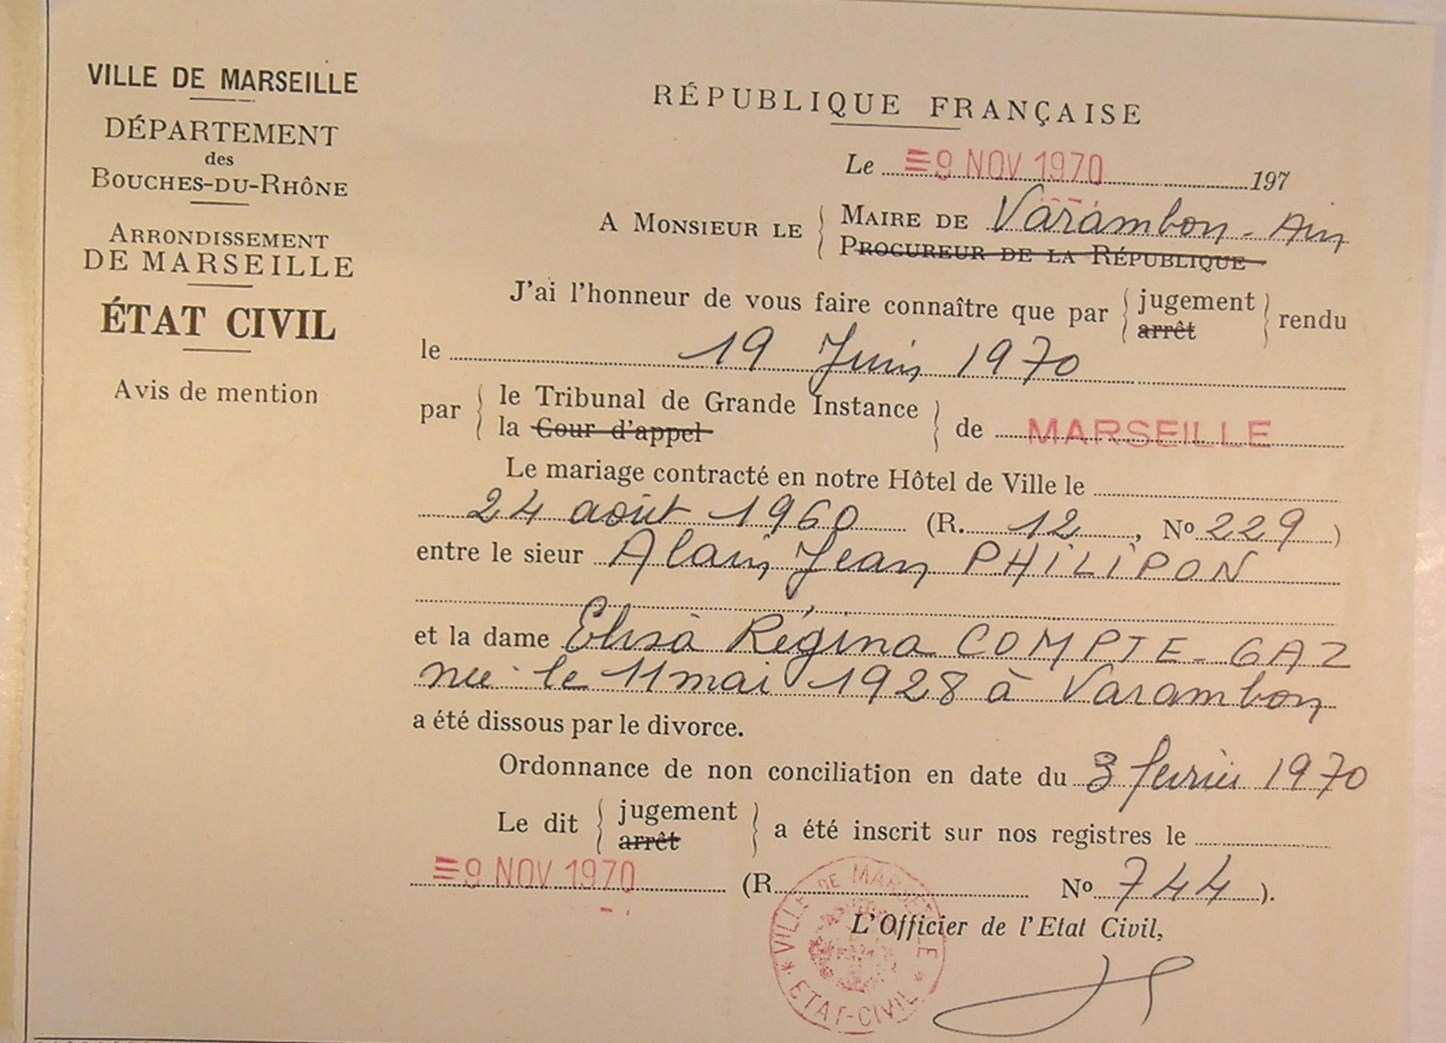 VILLE DE MARSEILLE
DÉPARTEMENT
des
BOUCHES-DU-RHÔNE
ARRONDISSEMENT
DE MARSEILLE
ÉTAT CIVIL
Avis de mention
RÉPUBLIQUE FRANÇAISE
Le 9 NOV 1970 197
A MONSIEUR LE { MAIRE DE Varambon - Ain
PROCUREUR DE LA RÉPUBLIQUE
J'ai l'honneur de vous faire connaître que par { jugement } rendu
arrêt
le 19 Juin 1970
par { le Tribunal de Grande Instance } de MARSEILLE
la Cour d'appel
Le mariage contracté en notre Hôtel de Ville le
24 août 1960 (R. 12, No 229)
entre le sieur Alain Jean PHILIPON
et la dame Elisa Régina COMPTE-GAZ
née le 11 mai 1928 à Varambon
a été dissous par le divorce.
Ordonnance de non conciliation en date du 3 fevrier 1970
Le dit { jugement } a été inscrit sur nos registres le
arrêt
9 NOV 1970 (R No 744).
L'Officier de l'Etat Civil,
VILLE DE MARSEILLE * ETAT-CIVIL *